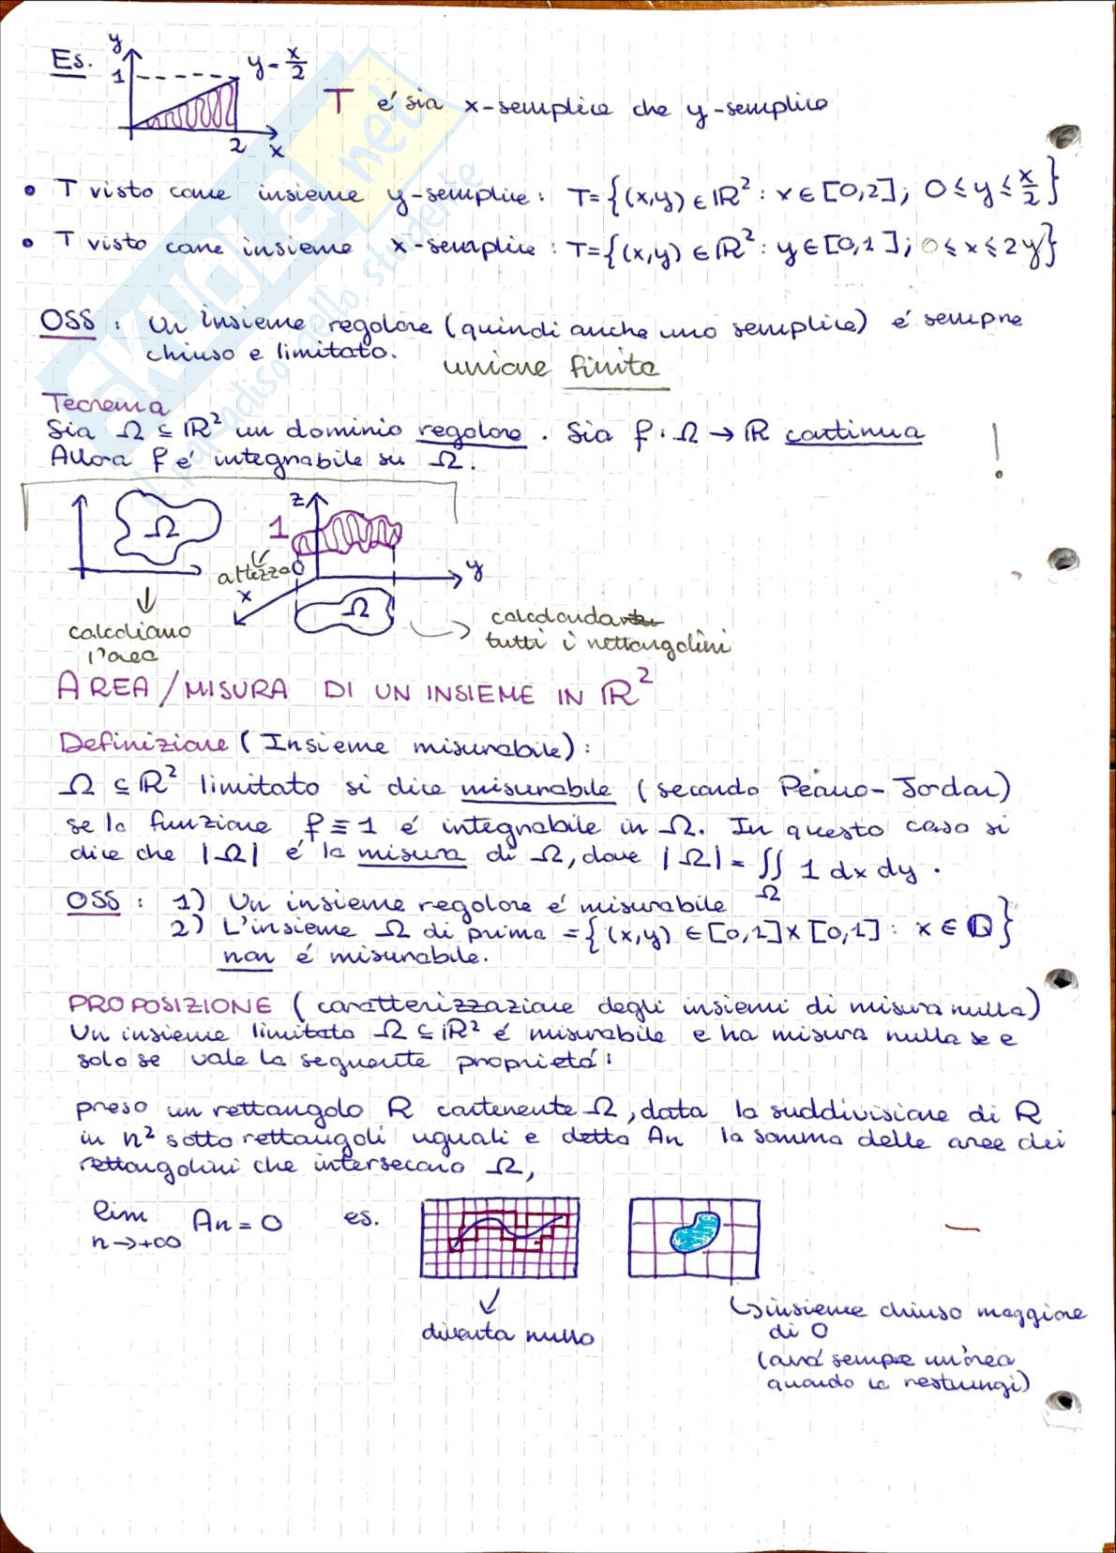 Es. y 1 y = x/2 2 x
T é sia x-semplice che y-semplice
• T visto come insieme y-semplice: T={(x,y) ∈ ℝ² : x ∈ [0,2]; 0 ≤ y ≤ x/2}
• T visto come insieme x-semplice: T={(x,y) ∈ ℝ² : y ∈ [0,1]; 0 ≤ x ≤ 2y}
OSS: Un insieme regolare (quindi anche uno semplice) é sempre
chiuso e limitato.
unione finita
Teorema
Sia Ω ⊆ ℝ² un dominio regolare. Sia f: Ω → ℝ continua
Allora f é integrabile su Ω.
!
Ω z 1 altezza 0 y x Ω
calcoliamo
l'area
calcolando
tutti i rettangolini
AREA/MISURA DI UN INSIEME IN ℝ²
Definizione (Insieme misurabile):
Ω ⊆ ℝ² limitato si dice misurabile (secondo Peano-Jordan)
se la funzione f ≡ 1 é integrabile in Ω. In questo caso si
dice che |Ω| é la misura di Ω, dove |Ω| = ∬Ω 1 dx dy.
OSS: 1) Un insieme regolare é misurabile
2) L'insieme Ω di prima = {(x,y) ∈ [0,1]×[0,1] : x ∈ ℚ}
non é misurabile.
PROPOSIZIONE (caratterizzazione degli insiemi di misura nulla)
Un insieme limitato Ω ⊆ ℝ² é misurabile e ha misura nulla se e
solo se vale la seguente proprietá:
preso un rettangolo R contenente Ω, data la suddivisione di R
in n² sottorettangoli uguali e detta An la somma delle aree dei
rettangolini che intersecano Ω,
lim n→+∞ An = 0 es.
diventa nullo
↳ insieme chiuso maggiore
di 0
(avrá sempre un'area
quando la restringi)
skuola.net
il paradiso dello studente